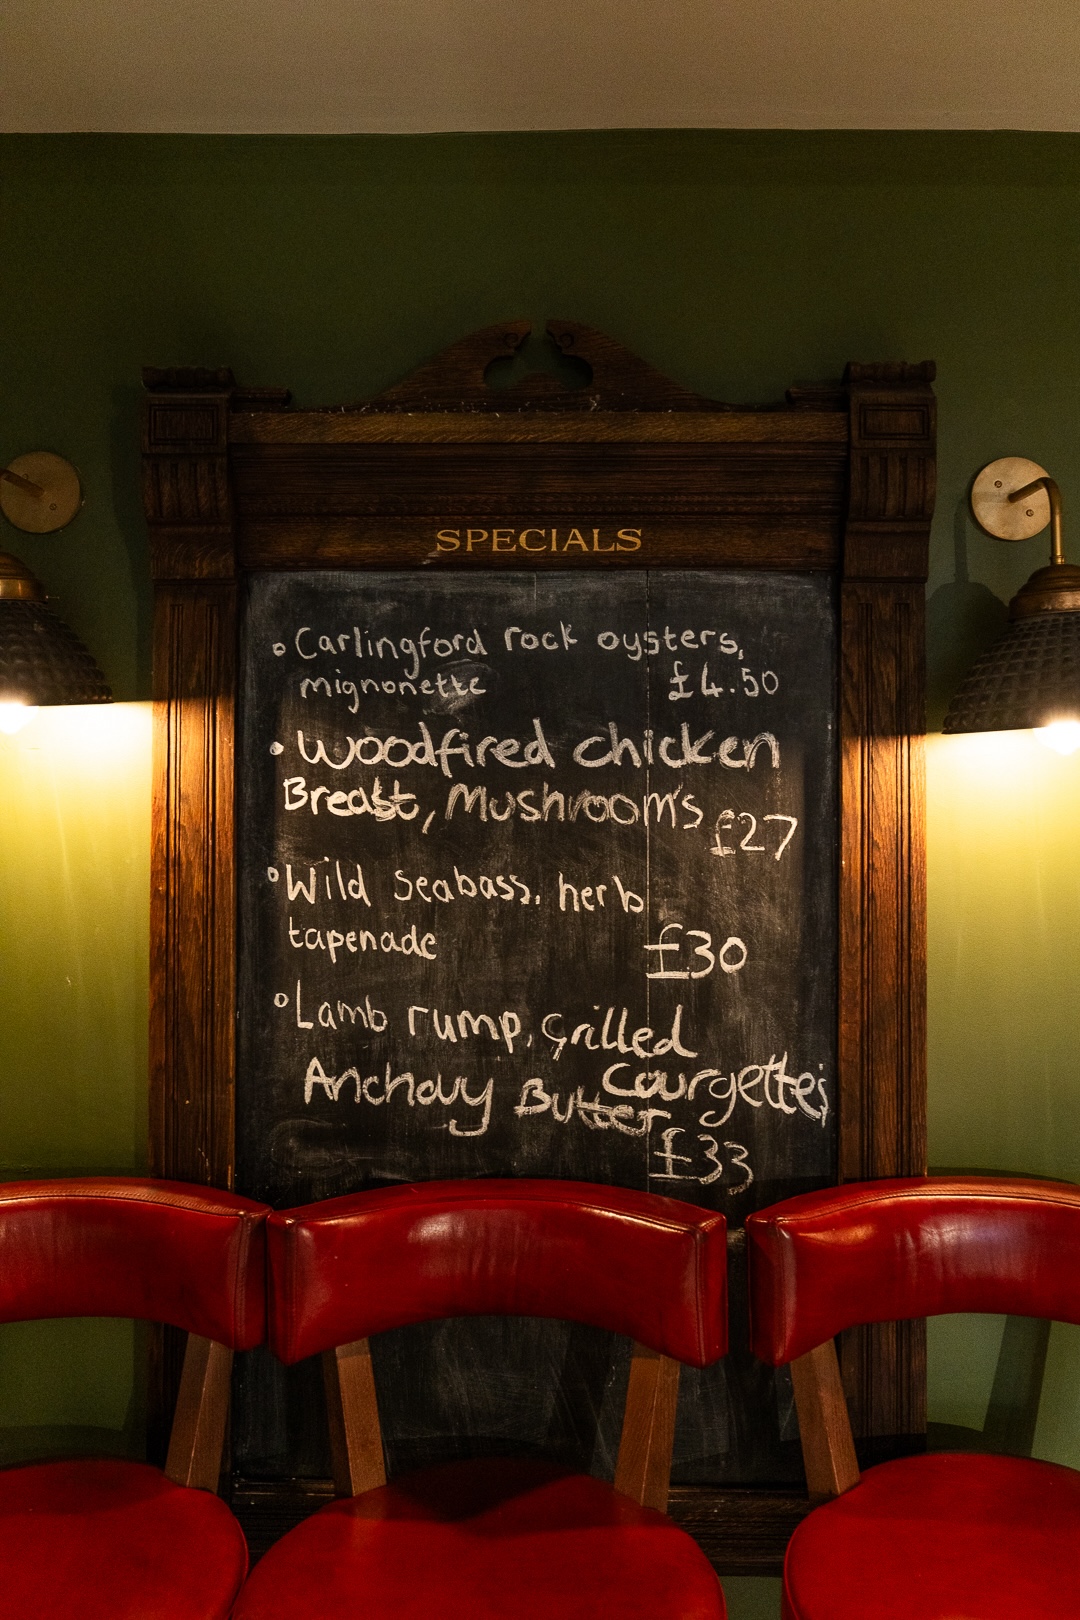 SPECIALS
Carlingford rock oysters,
mignonette £4.50
woodfired chicken
Breast, Mushrooms £27
Wild seabass, herb
tapenade £30
Lamb rump, Grilled
Courgette's
Anchovy Butter
£33